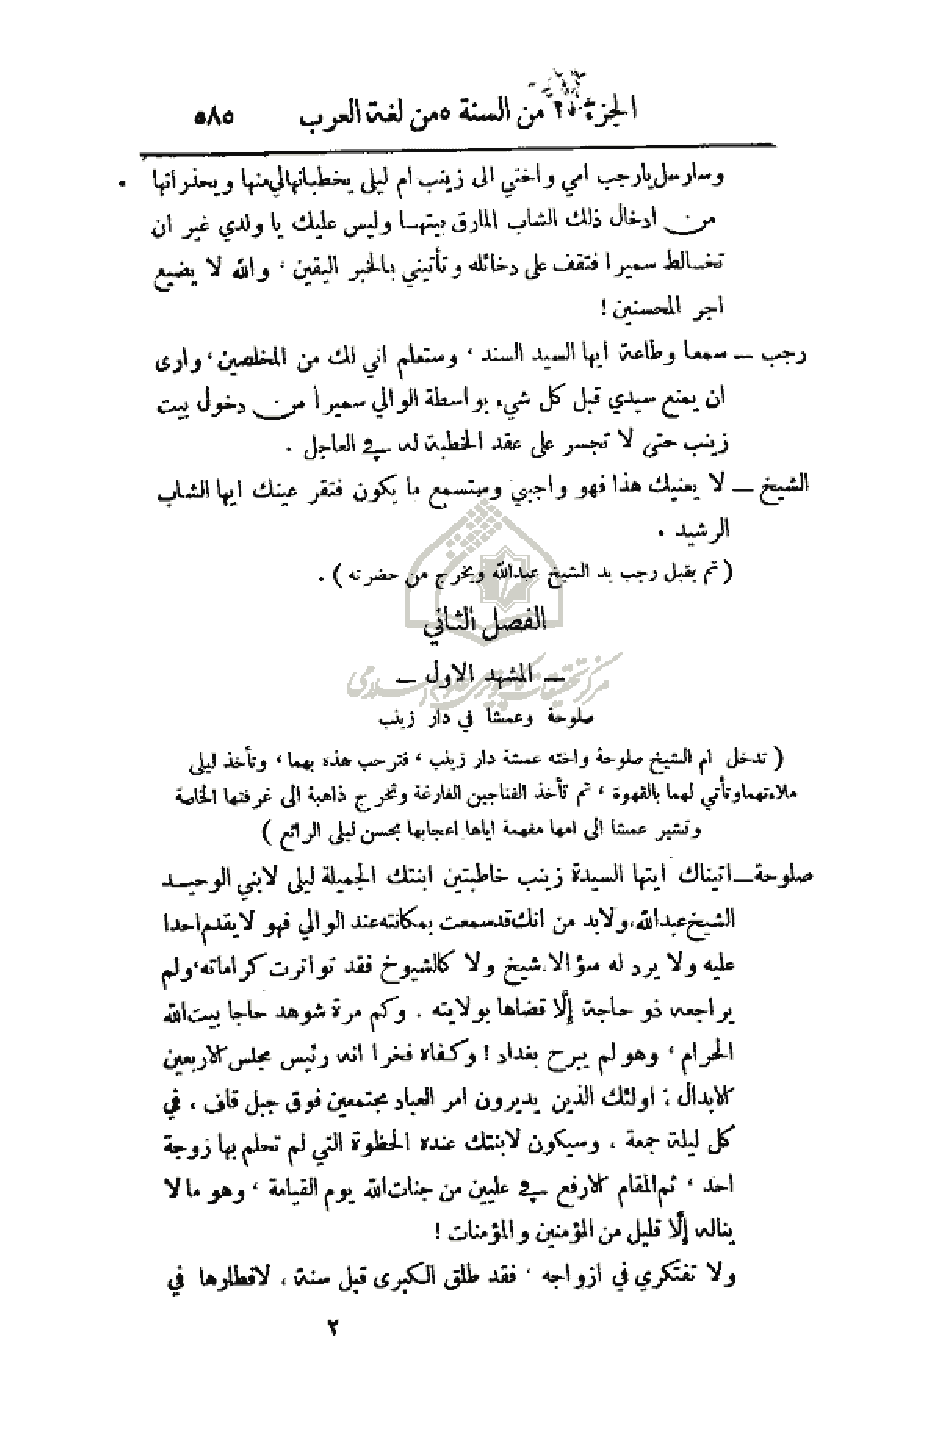 الجزء ١٠ من السنة ٥ من لغة العرب ٥٨٥
وسارسل يارجب امي واختي الى زينب ام ليلى يخطبانها لي منها ويحذراتها .
من ادخال ذلك الشاب المارق بيتها وليس عليك يا ولدي غير ان
تخالط سميرا فتقف على دخائله وتأتيني بالخبر اليقين ، والله لا يضيع
اجر المحسنين !
رجب ــ سمعا وطاعة ايها السيد السند ، وستعلم اني لك من المخلصين ، وارى
ان يمنع سيدي قبل كل شيء بواسطة الوالي سميراً من دخول بيت
زينب حتى لا تجسر على عقد الخطبة له في العاجل .
الشيخ ــ لا يعنيك هذا فهو واجبي وستسمع ما يكون فتقر عينك ايها الشاب
الرشيد .
( ثم يقبل رجب يد الشيخ عبدالله ويخرج من حضرته ) .
الفصل الثاني
ــ المشهد الاول ــ
صلوحة وعمشا في دار زينب
( تدخل ام الشيخ صلوحة واخته عمشة دار زينب ، فترحب هذه بهما ، وتأخذ ليلى
ملاءتهما وتأتي لهما بالقهوة ، ثم تأخذ الفناجين الفارغة وتخرج ذاهبة الى غرفتها الخاصة
وتشير عمشا الى امها مفهمة اياها اعجابها بحسن ليلى الرائع )
صلوحة ــ اتيناك ايتها السيدة زينب خاطبتين ابنتك الجميلة ليلى لابني الوحيد
الشيخ عبدالله، ولابد من انك قد سمعت بمكانته عند الوالي فهو لايقدم احدا
عليه ولا يرد له سؤالا. شيخ ولا كالشيوخ فقد تواترت كراماته، ولم
يراجعه ذو حاجة إلا قضاها بولايته . وكم مرة شوهد حاجا بيت الله
الحرام ، وهو لم يبرح بغداد ! وكفاه فخرا انه رئيس مجلس الاربعين
الابدال : اولئك الذين يديرون امر العباد مجتمعين فوق جبل قاف ، في
كل ليلة جمعة . وسيكون لابنتك عنده الحظوة التي لم تحلم بها زوجة
احد ، ثم المقام الارفع في عليين من جنات الله يوم القيامة ، وهو مالا
يناله إلا قليل من المؤمنين والمؤمنات !
ولا تفتكري في ازواجه ، فقد طلق الكبرى قبل سنة ، لافطارها في
٢